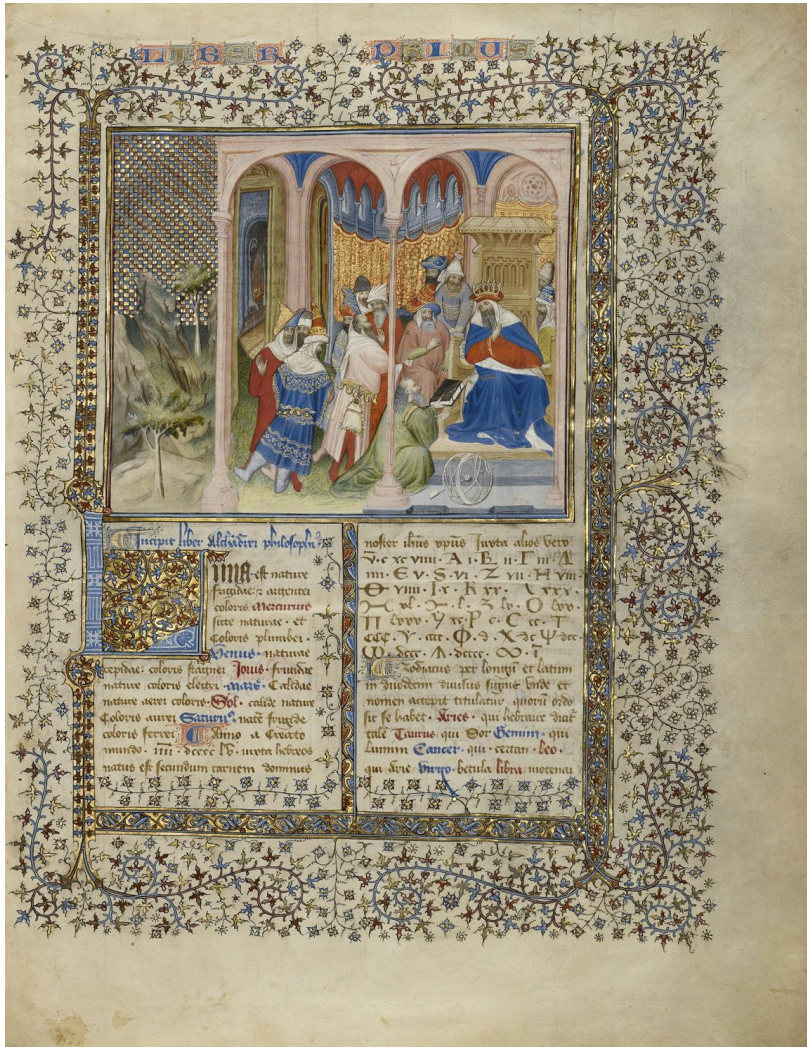 LIBER PRIMUS
Incipit liber Alchandrei philosophi
Luna est nature
frigidae: argentei
coloris Mercurius
Coloris plumbei ·
Venus · naturae
tepidae: coloris stagnei Jovis · frigidae
nature coloris electri · Mars · Calidae
nature aerei coloris · Sol · calide nature
Coloris aurei Saturnus · nature frigide
coloris ferrei Anno a Creato
mundo · iiii · dcccc lv · iuxta hebreos
natus est secundum carnem dominus
noster ihus xpus Iuxta alios vero
v · c xc viiii · A i · B ii · Γ iii · Δ
iiii · Є v · S · vi · Z vii · H viii
Θ viiii · I · x · K xx ·
Π lxxx · xc · P c · C cc · T
ccc · Y · cccc · Φ · d · X dc Ψ dcc ·
Zodiacus per longum et latum
in duodecim divisus signis unde et
nomen accepit titulatur quorum ordo
sic se habet · Aries · qui hebraice dicitur
tale Taurus · qui Sor Gemini · qui
Cancer · qui · Leo ·
qui · Arie Virgo · betula libra